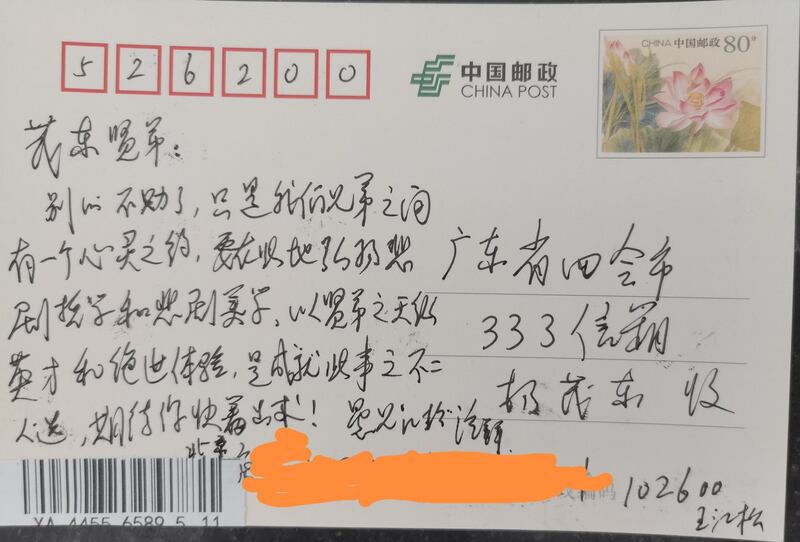 526200
中国邮政
CHINA POST
CHINA 中国邮政 80分
茂东贤弟：
别的不劝了，只是我们兄弟之间
有一个心灵之约，要在此地 悲
剧哲学和悲剧美学，以贤弟之天纵
英才和绝世体验，是成就此事之不二
人选，期待你快 出来！愚兄江松
北京
广东省四会市
333信箱
杨茂东 收
编码 102600
王江松
XA 4455 6589 5 11